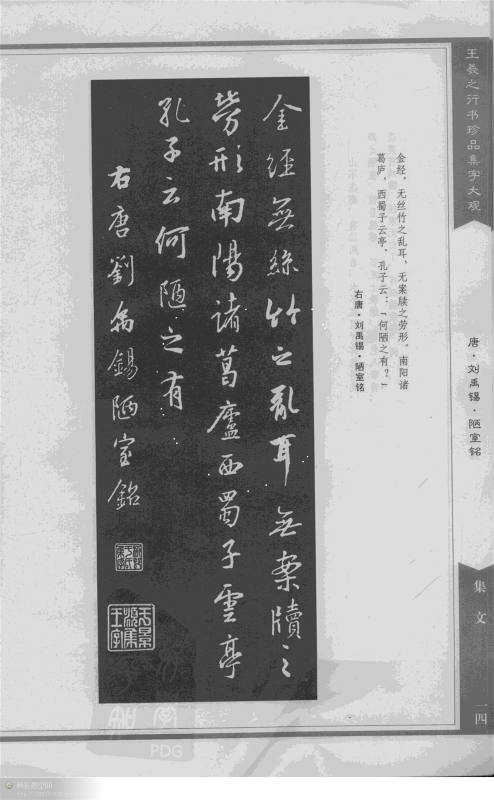 王羲之行书珍品集字大观
唐·刘禹锡·陋室铭
集文
一四
金经。无丝竹之乱耳，无案牍之劳形。南阳诸
葛庐，西蜀子云亭，孔子云：「何陋之有？」
右唐·刘禹锡·陋室铭
金經無絲竹之亂耳無案牘之
勞形南陽諸葛廬西蜀子雲亭
孔子云何陋之有
右唐劉禹錫陋室銘
PDG